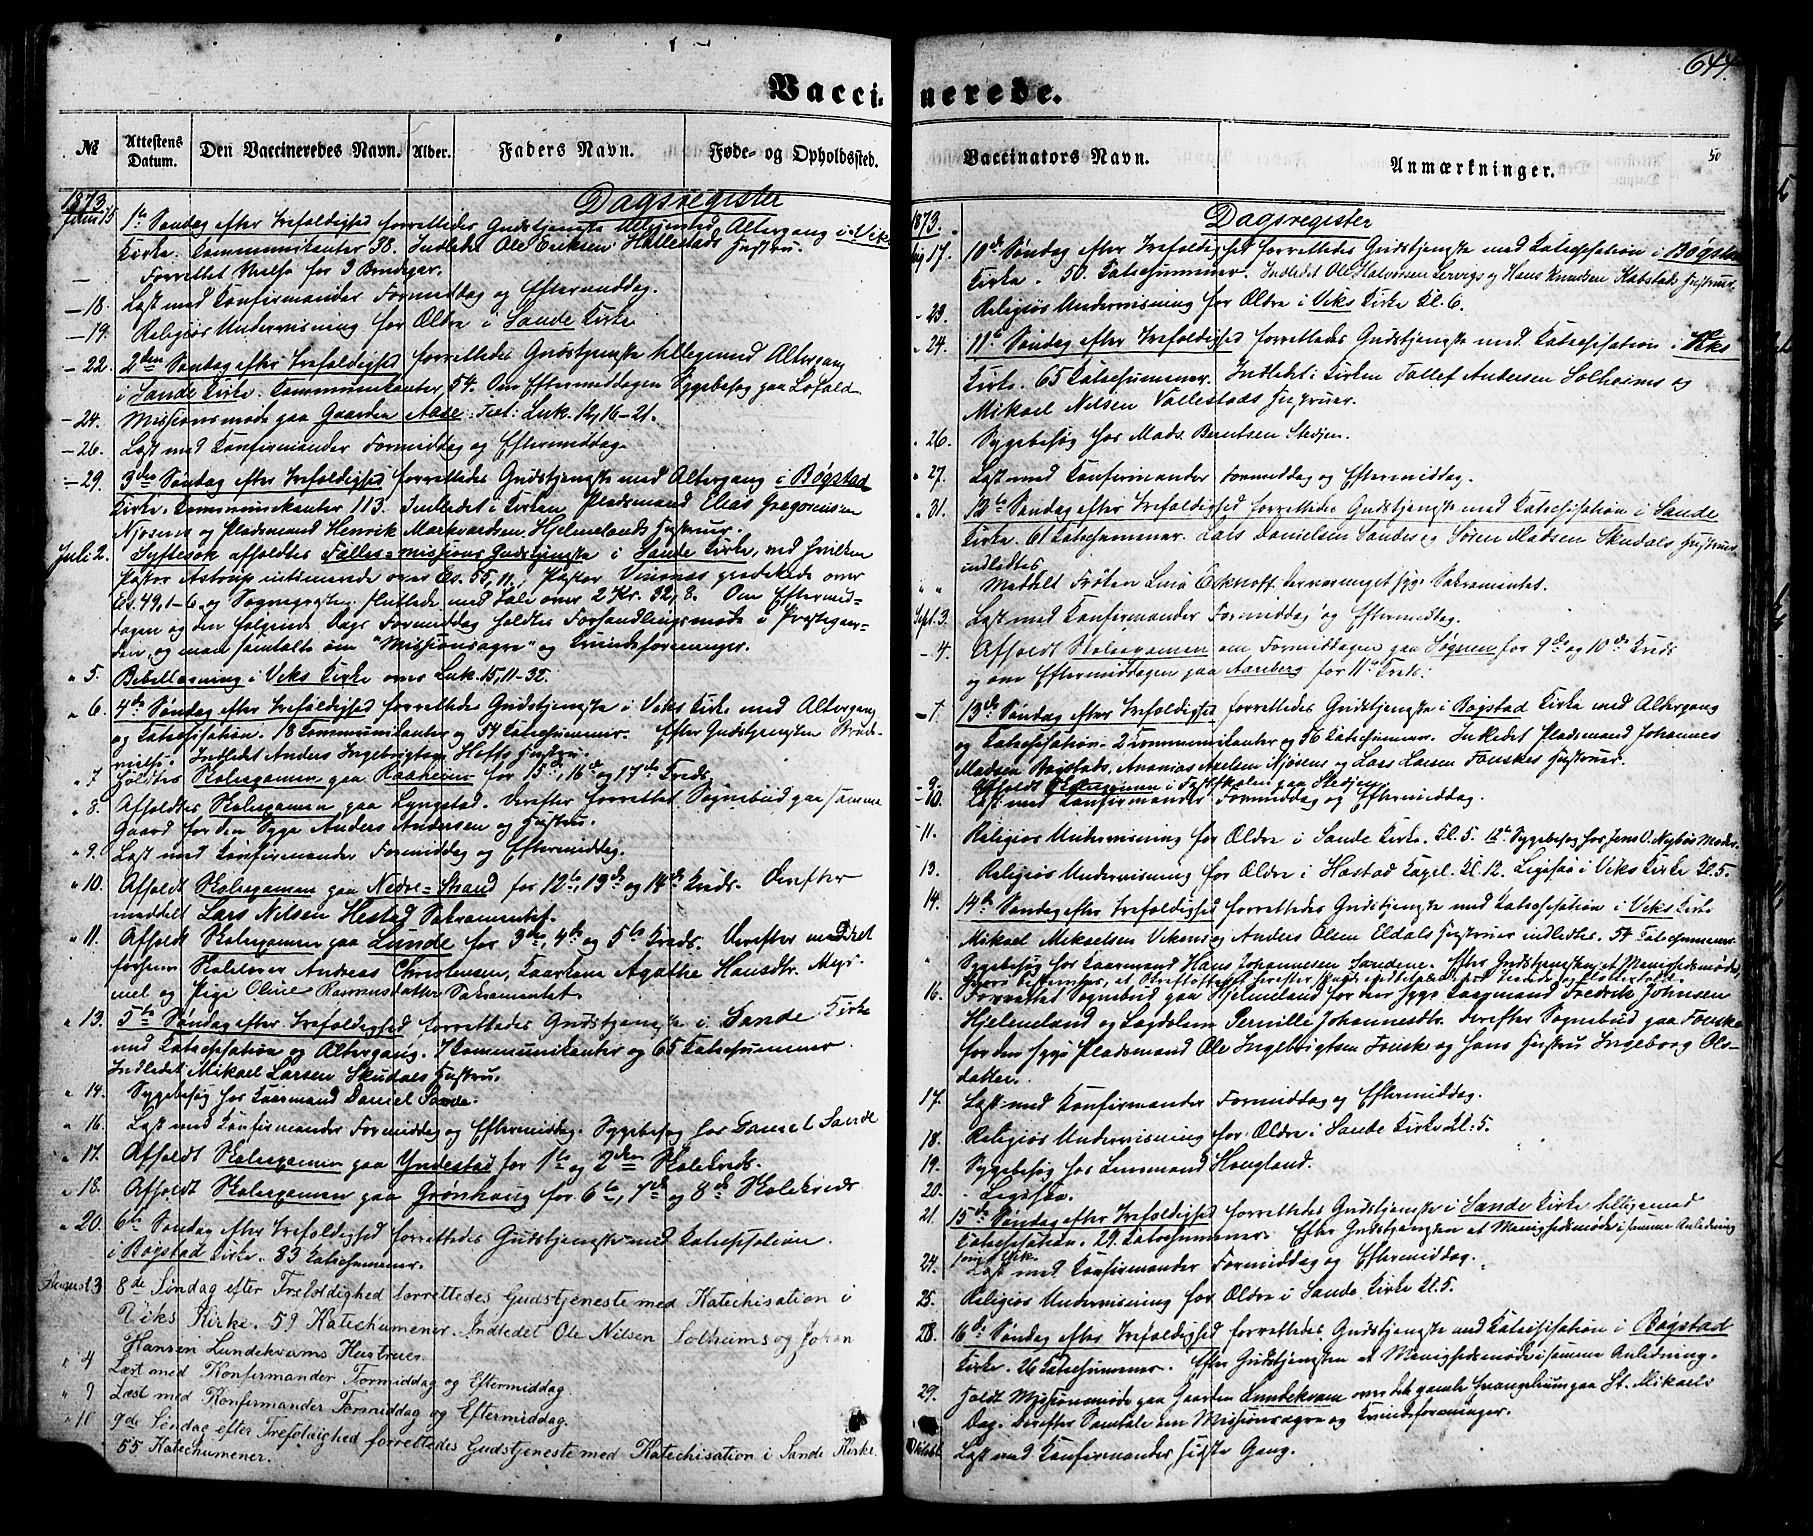 644.
Vaccinerede.
50
№
Attestens Datum.
Den Vaccineredes Navn.
Alder.
Faders Navn.
Føde- og Opholdssted.
Vaccinators Navn.
Anmærkninger.
1873. Dagsregister
Juni 15 1te Søndag efter Trefoldighed forrettedes Gudstjeneste tilligemed Altergang i Viks
Kirke. Kommunikanter 38. Indledet Ole Eriksen Hallestads Hustru.
— Forrettet Vielse for 3 Brudepar.
— 18. Læst med Konfirmander Formiddag og Eftermiddag.
— 19. Religiøs Undervisning for Ældre i Sande Kirke
— 22. 2den Søndag efter Trefoldighed forrettedes Gudstjeneste tilligemed Altergang
i Sande Kirke. Kommunikanter 54. Om Eftermiddagen Sygebesøg paa Lofald
— 24. Missionsmøde paa Gaarden Aase. Text: Luk. 14, 16-21.
— 26. Læst med Konfirmander Formiddag og Eftermiddag.
— 29. 3die Søndag efter Trefoldighed forrettedes Gudstjeneste med Altergang i Bøgstad
Kirke. Kommunikanter 113. Indledet i Kirken Pladsmand Elias Gregoriussen
Njøsens og Pladsmand Henrik Markvardsen Hjelmelands Hustruer.
Juli 2. afholdtes Fælles-missions Gudstjeneste i Sande Kirke, ved hvilken
Pastor Astrup intimerede over Es. 55, 11, Pastor prædikede over
Es. 49, 1-6, og Sognepresten sluttede med Tale over 2 Kr. 32, 8. Om Eftermid-
dagen og den følgende Dags Formiddag holdtes Forhandlingsmøde i Prestegaar-
den, og man samtalte om "Missionssagen" og Kvindeforeninger.
" 5. Bibellæsning i Viks Kirke over Luk. 15, 11-32.
" 6. 4de Søndag efter Trefoldighed forrettedes Gudstjeneste i Viks Kirke med Altergang
og Katechisation. 18 Kommunikanter og 54 Katechumener. Efter Gudstjenesten Brude-
vielse. Indledet Anders Ingebrigtsen Hofts Hustru.
" 7 Holdtes Skoleexamen paa Raaheim for 15de, 16de og 17de Kreds.
" 8. Afholdtes Skoleexamen paa Lyngstad. Derefter forrettet Sognebud paa samme
Gaard for den Syge Anders Andersen og Hustru.
" 9. Læst med Konfirmander Formiddag og Eftermiddag.
" 10. Afholdt Skoleexamen paa Nedre-Strand for 12te, 13de og 14de Kreds. Derefter
meddelt Lars Nilsen Hestad Sakramentet.
" 11. Afholdt Skoleexamen paa Lunde for 3die, 4de og 5te Kreds. Derefter meddelt
forhenv. Skolelærer Andreas Christensen, Kaarkone Agathe Hansdtr.
og Pige Oline Rasmusdatter Sakramentet.
" 13. 5te Søndag efter Trefoldighed forrettedes Gudstjeneste i Sande Kirke
med Katechisation og Altergang. 7 Kommunikanter og 65 Katechumener.
Indledet Mikael Larsen Skudals Hustru.
" 14. Sygebesøg hos Kaarmand Daniel Sande.
" 16. Læst med Konfirmander Formiddag og Eftermiddag. Sygebesøg hos Daniel Sande
" 17. Afholdt Skoleexamen paa Yndestad for 1te og 2den Skolekreds.
" 18. Afholdt Skoleexamen paa Grønhaug for 6te, 7de og 8de Skolekreds
" 20. 6te Søndag efter Trefoldighed forrettedes Gudstjeneste med Katechisation
i Bøgstad Kirke. 83 Katechumener.
August 3 8de Søndag efter Trefoldighed forrettedes Gudstjeneste med Katechisation i
Viks Kirke. 59 Katechumener. Indledet Ole Nilsen Solheims og Johan
Hansen Lundekvams Hustruer.
" 4 Læst med Konfirmander Formiddag og Eftermiddag.
" 9 Læst med Konfirmander Formiddag og Eftermiddag.
" 10 9de Søndag efter Trefoldighed forrettedes Gudstjeneste med Katechisation i Sande Kirke.
55 Katechumener.
1873. Dagsregister
Aug 17. 10de Søndag efter Trefoldighed forrettedes Gudstjeneste med Katechisation i Bøgstad
Kirke. 50 Katechumener. Indledet Ole Halvorsen Lervigs og Hans Knudsen Kabstads Hustruer.
- 23. Religiøs Undervisning for Ældre i Viks Kirke Kl. 6.
" 24. 11te Søndag efter Trefoldighed forrettedes Gudstjeneste med Katechisation i Viks
Kirke. 65 Katechumener. Indledet i Kirken Tollef Andersen Solheims og
Mikael Nilsen Vallestads Hustruer.
" 26. Sygebesøg hos Mads Berntsen Stedjen.
" 27. Læst med Konfirmander Formiddag og Eftermiddag.
" 31. 12te Søndag efter Trefoldighed forrettedes Gudstjeneste med Katechisation i Sande
Kirke. 61 Katechumener. Lars Danielsen Sandes og Søren Madsen Skudals Hustruer
indledtes.
" " Meddelt Frøken Lina det hellige Sakramentet.
Sept. 3. Læst med Konfirmander Formiddag og Eftermiddag.
- 4. Afholdt Skoleexamen om Formiddagen paa Søgnen for 9de og 10de Kreds
og om Eftermiddagen paa Aarberg for 11te Kreds.
- 7. 13de Søndag efter Trefoldighed forrettedes Gudstjeneste i Bøgstad Kirke med Altergang
og Katechisation. 2 Kommunikanter og 56 Katechumener. Indledet Pladsmand Johannes
Madsen Bøgstads, Ananias Axelsen Njøsens og Lars Larsen Fonskes Hustruer.
- 9. Afholdt Skoleexamen i Fastskolen paa Stedjen
- 10. Læst med Konfirmander Formiddag og Eftermiddag.
11. Religiøs Undervisning for Ældre i Sande Kirke. Kl. 5. Sygebesøg hos Jens Nybøs Moder.
13. Religiøs Undervisning for Ældre i Hæstad Kapel Kl. 12. Ligesaa i Viks Kirke Kl. 5.
14. 14de Søndag efter Trefoldighed forrettedes Gudstjeneste med Katechisation i Viks Kirke
Mikael Mikaelsen Vikens og Anders Olsen Eldals Hustruer indledtes. 54 Katechumener.
" Sygebesøg hos Kaarmand Hans Johannesen Sandene. Efter Gudstjenesten et Menighedsmøde,
16. Forrettet Sognebud paa Hjelmeland for den syge Kaarmand Fredrik Johnsen
Hjelmeland og Lægdslem Pernille Johannesdtr. Derefter Sognebud paa Fonske
for den syge Pladsmand Ole Ingebrigtsen Fonske og hans Hustru Ingeborg Ols-
datter.
17. Læst med Konfirmander Formiddag og Eftermiddag.
18. Religiøs Undervisning for Ældre i Sande Kirke Kl. 5.
19. Sygebesøg hos Lensmand Hougland.
20. Ligesaa.
21. 15de Søndag efter Trefoldighed forrettedes Gudstjeneste i Sande Kirke tilligemed
Katechisation. 29 Katechumener. Efter Gudstjenesten et Menighedsmøde i samme Anledning
som i Vik.
24. Læst med Konfirmander Formiddag og Eftermiddag.
25. Religiøs Undervisning for Ældre i Sande Kirke Kl. 5.
28. 16de Søndag efter Trefoldighed forrettedes Gudstjeneste med Katechisation i Bøgstad
Kirke. 26 Katechumener. Efter Gudstjenesten et Menighedsmøde i samme Anledning.
29. Holdt Missionsmøde paa Gaarden Lundekvam over det gamle Evangelium paa St. Mikaels
Dag. Derefter Samtale om Missionssagen og Kvindeforeninger.
Oktober 1. Læst med Konfirmander sidste Gang.